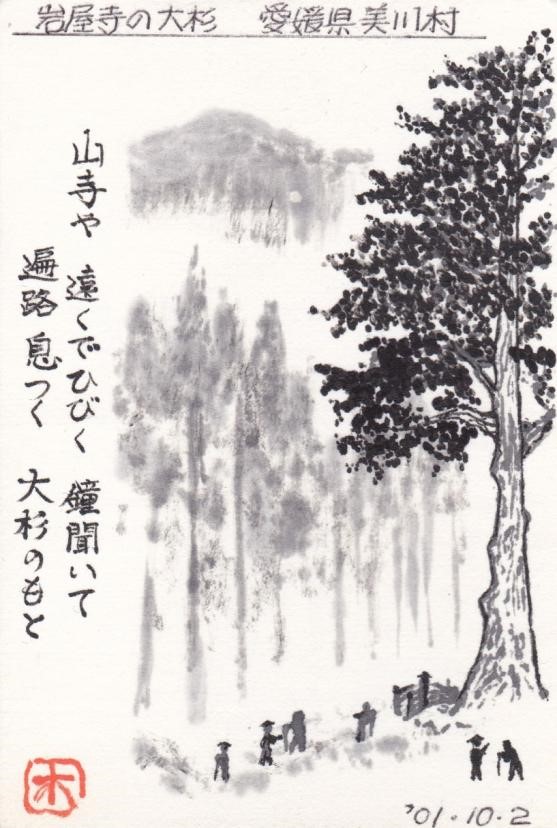 岩屋寺の大杉　愛媛県美川村
山寺や 遠くでひびく 鐘聞いて
遍路息つく 大杉のもと
'01.10.2